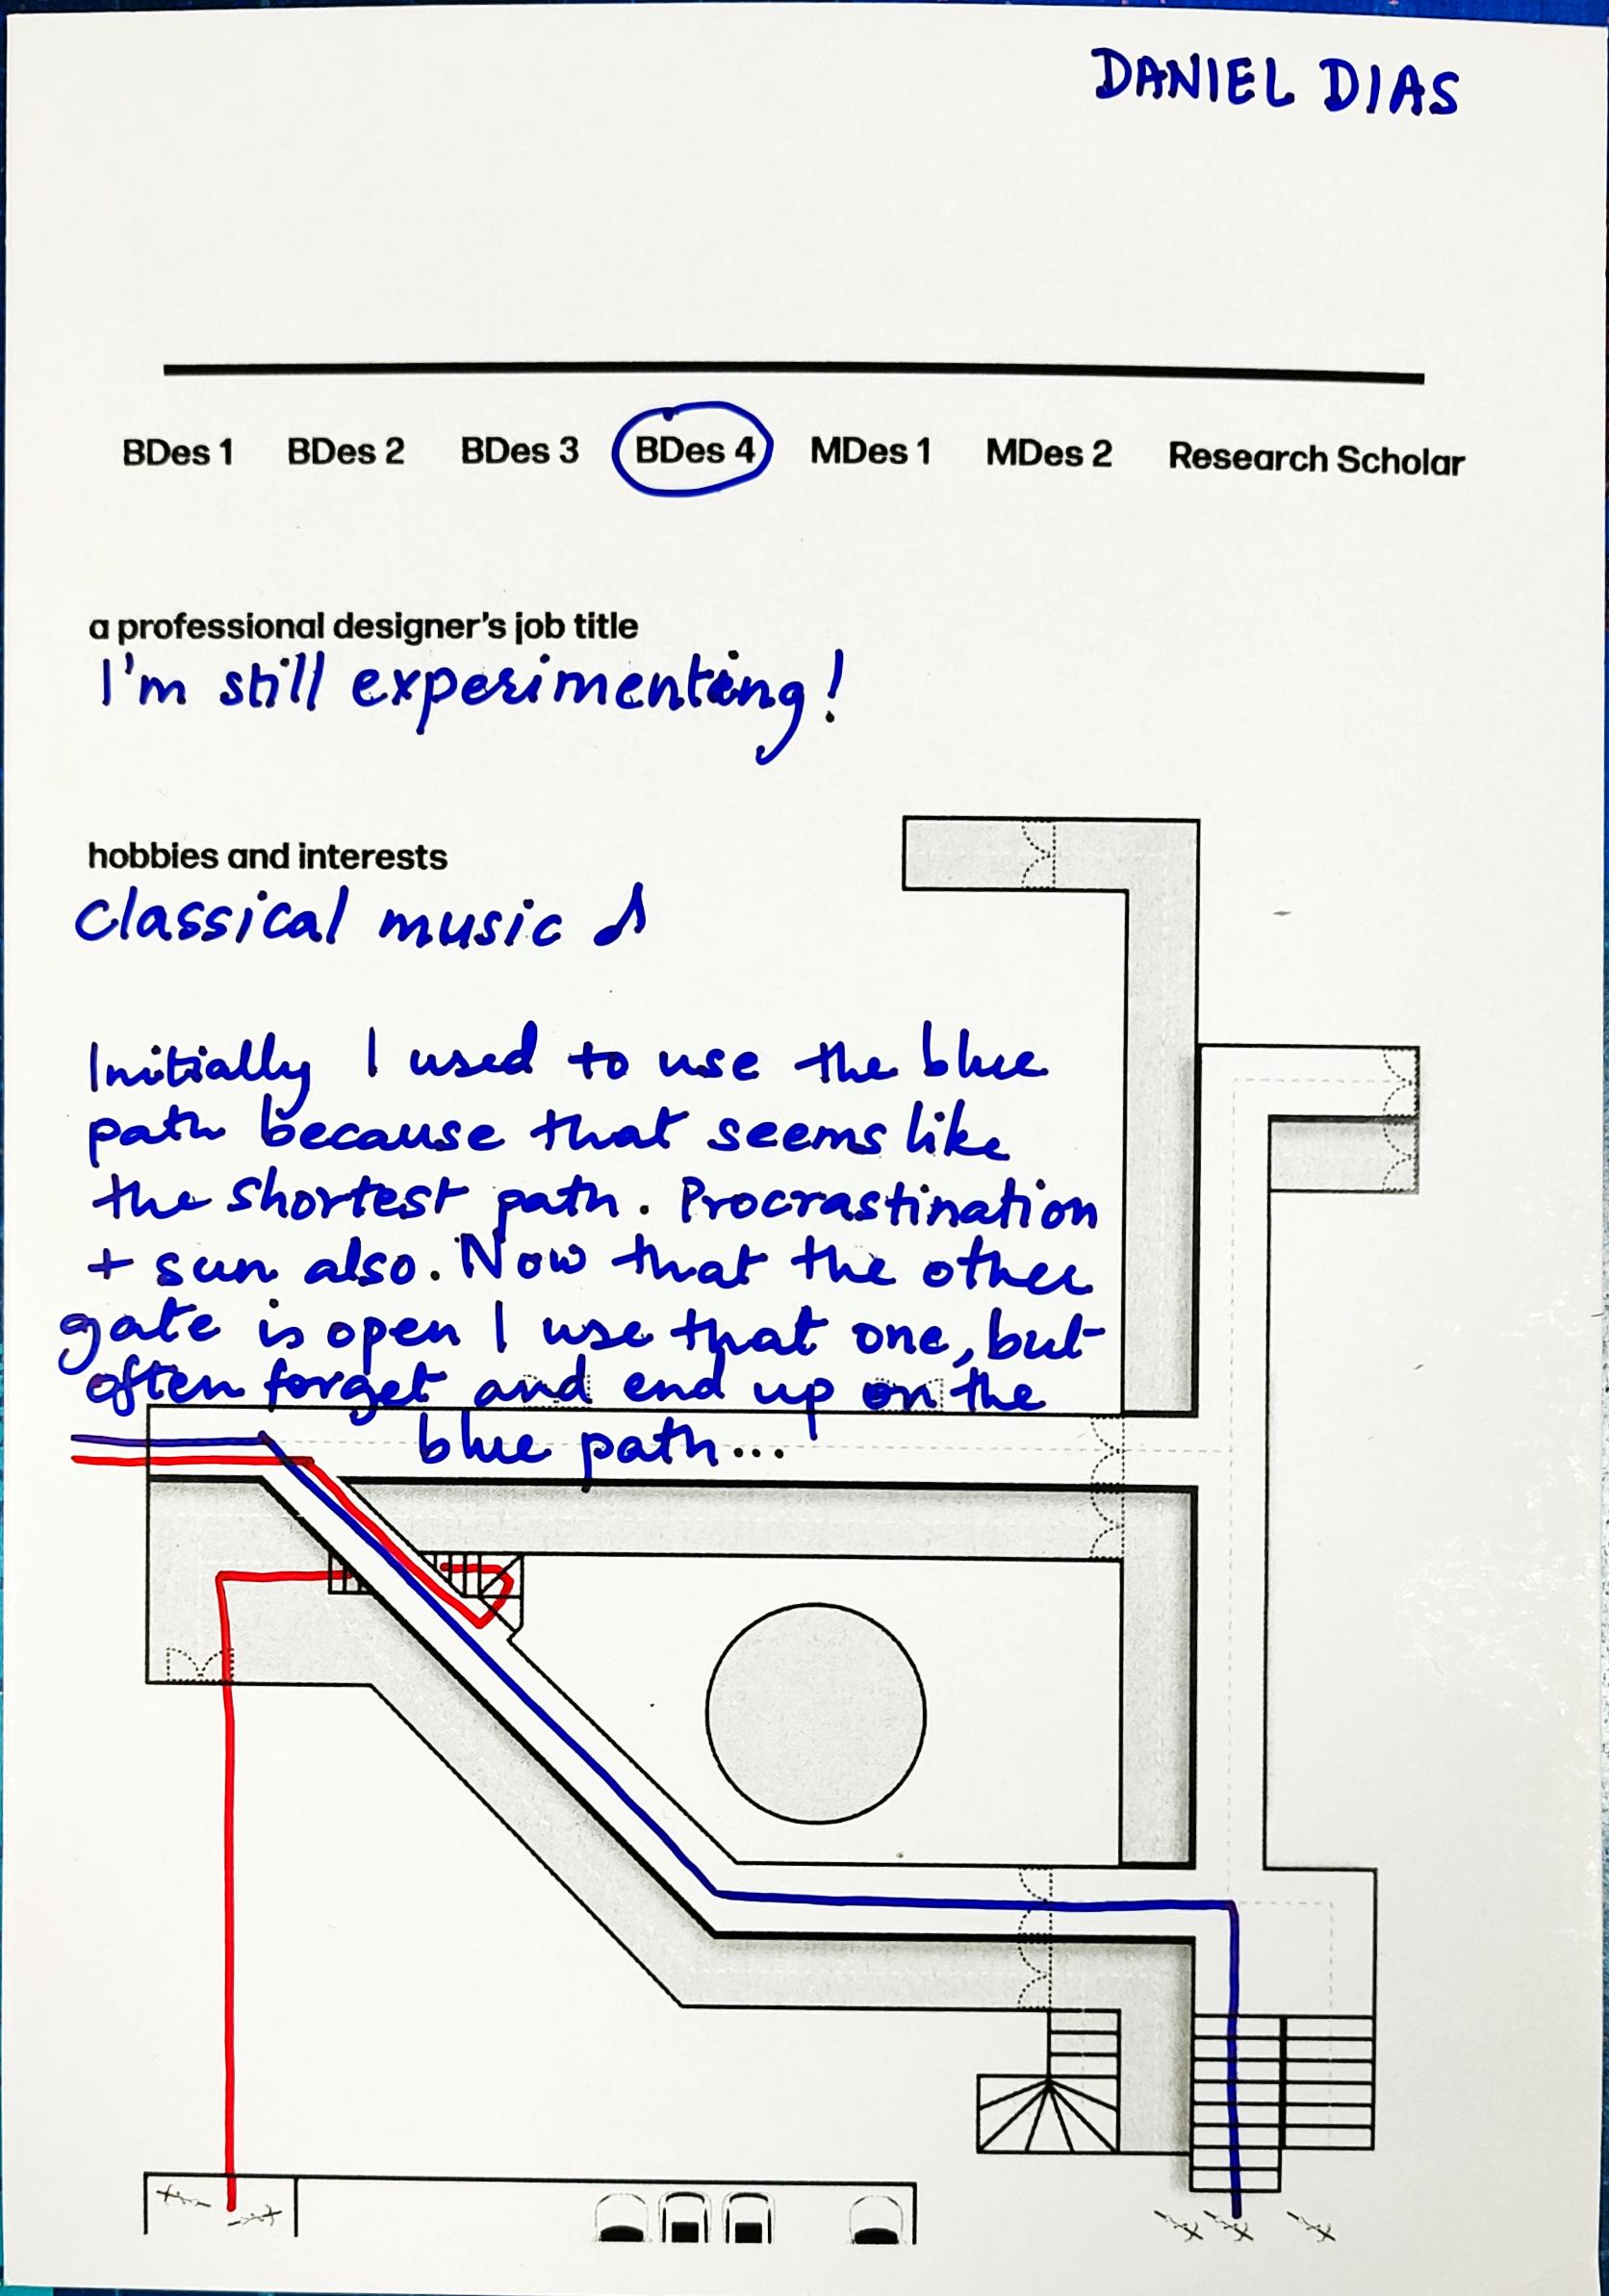 DANIEL DIAS
BDes 1 BDes 2 BDes 3 BDes 4 MDes 1 MDes 2 Research Scholar
a professional designer's job title
I'm still experimenting!
hobbies and interests
Classical music ♪
Initially I used to use the blue
path because that seems like
the shortest path. Procrastination
+ sun also. Now that the other
gate is open I use that one, but
often forget and end up on the
blue path...